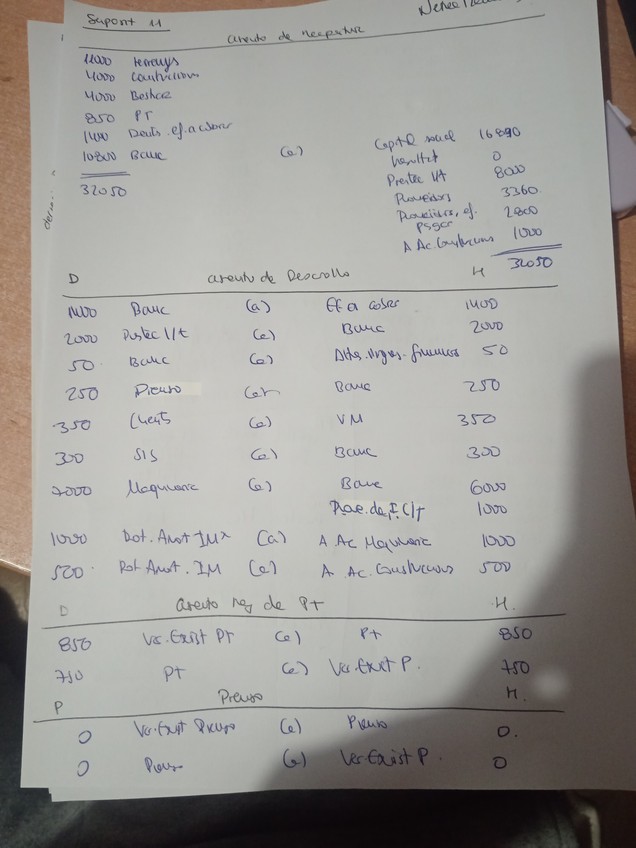 Supost 11
asiento de reapertura
11000 terrenys
4000 Construccions
4000 Bestiar
850 PT
1400 Deuts. ef. a cobrar
10800 Banc (a)
32050
Capital social 16890
Resultat 0
Prestec l/t 8000
Proveidors 3360
Proveidors, ef. pagar 2800
A Ac. Construccions 1000
32050
D asiento de Desarrollo H
1400 Banc (a) Ef a cobrar 1400
2000 Prestec l/t (a) Banc 2000
50 Banc (a) Altres. ingres. financers 50
250 Pienso (a) Banc 250
350 Clients (a) VM 350
300 SIS (a) Banc 300
7000 Maquinaria (a) Banc 6000
Prov. de I. C/T 1000
1000 Dot. Amot IM (a) A Ac Maquinaria 1000
500 Dot Amot. IM (a) A. Ac. Construccions 500
D asiento reg de PT H.
850 Var. Exist PT (a) PT 850
750 PT (a) Var. Exist P. 750
P Pienso H.
0 Var. Exist Pienso (a) Pienso 0.
0 Pienso (a) Var. Exist P. 0